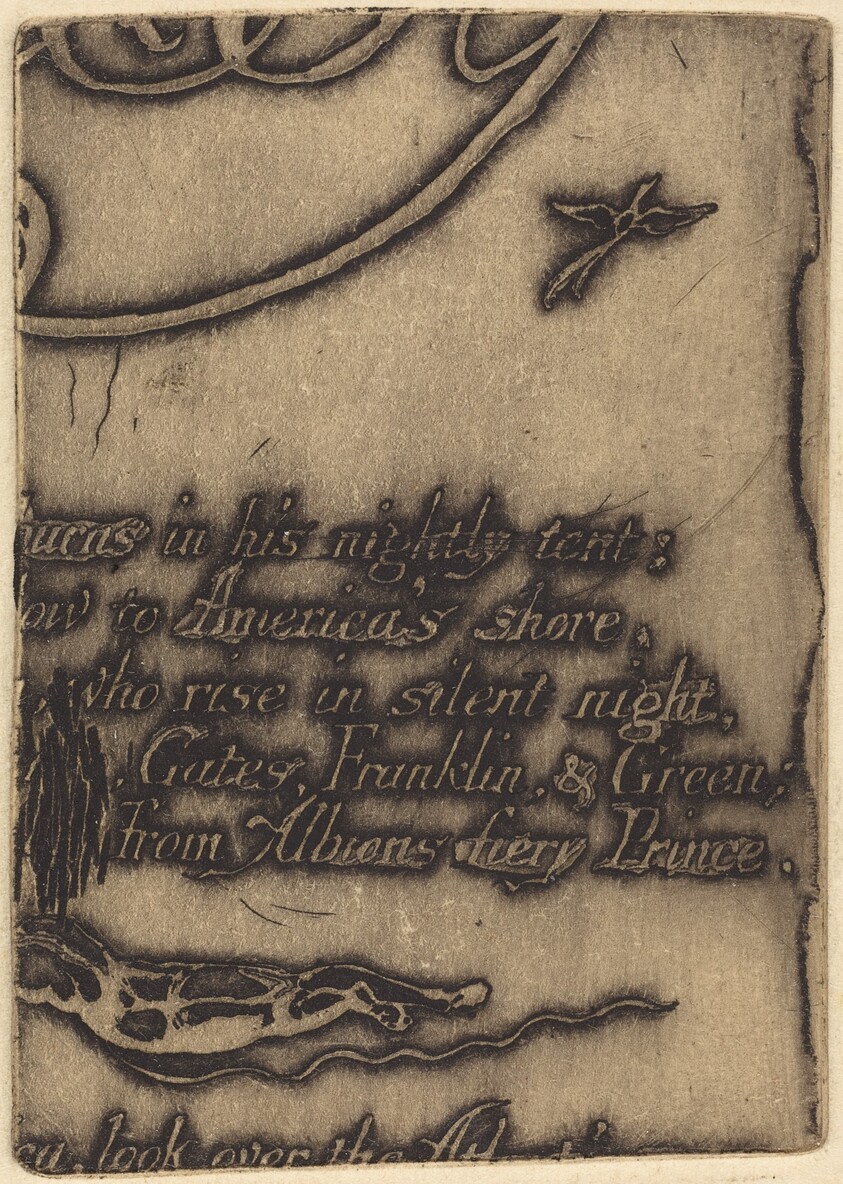 burns in his nightly tent;
ow to America's shore.
, who rise in silent night,
, Gates, Franklin, & Green;
from Albions fiery Prince.
ca, look over the